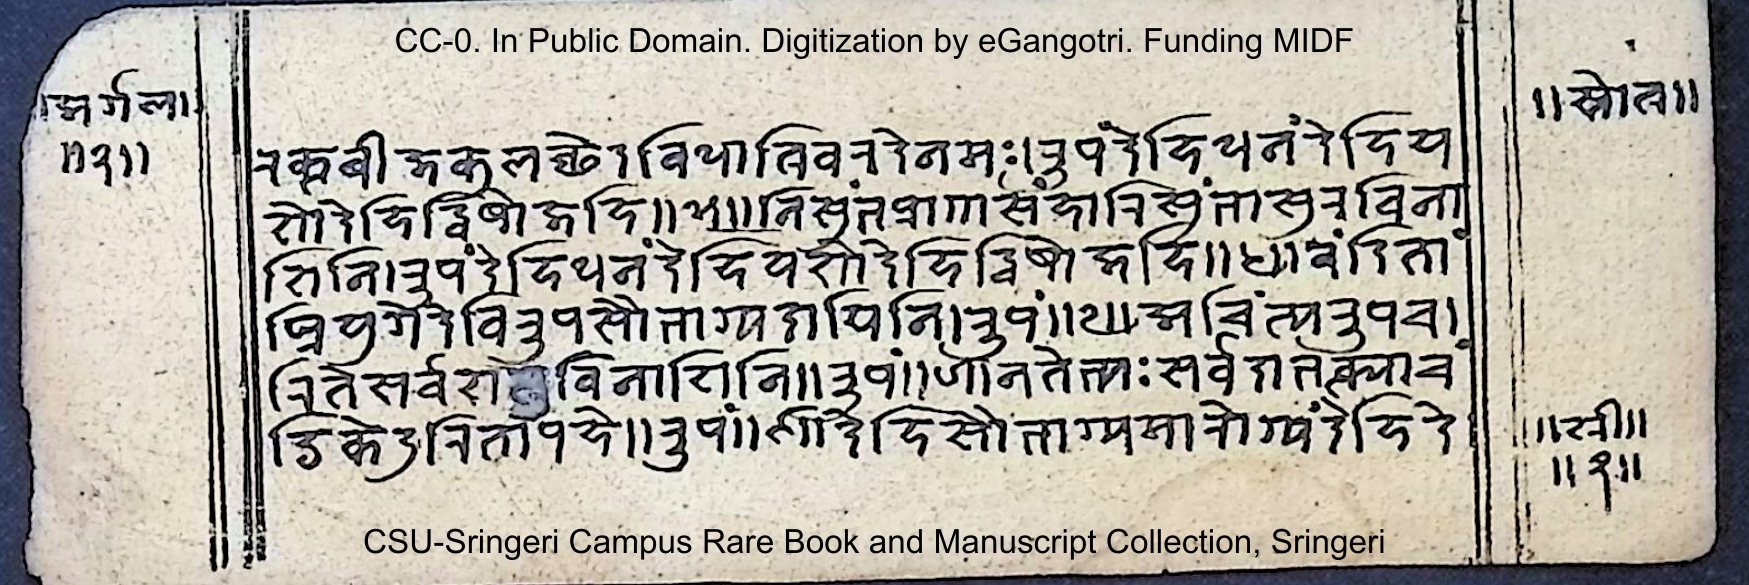 CC-0. In Public Domain. Digitization by eGangotri. Funding MIDF
।अर्गला।
॥२॥
॥स्तोत्र॥
रक्तबीजकुलच्छेदविधात्रिवरदेनमः।रुपंदेहिधनंदेहिय
शोदेहिद्विषोजहि॥५॥निसुंतप्राणसंहारिसुंतासुरविना
शिनि।रुपंदेहिधनंदेहियशोदेहिद्विषोजहि॥६॥वंदितां
घ्रियुगेदेविरुपसौताग्यदायिनि।रुपं॥७॥अचिंत्यरुपच।
रितेसर्वशत्रुविनाशिनि॥रुपं॥८॥नतेत्यःसर्वदातक्त्याच
डिकेदुरितापहे॥रुपं॥९॥देहिसौताग्यमारोग्यंदेहिदे
॥श्री॥
॥२॥
CSU-Sringeri Campus Rare Book and Manuscript Collection, Sringeri